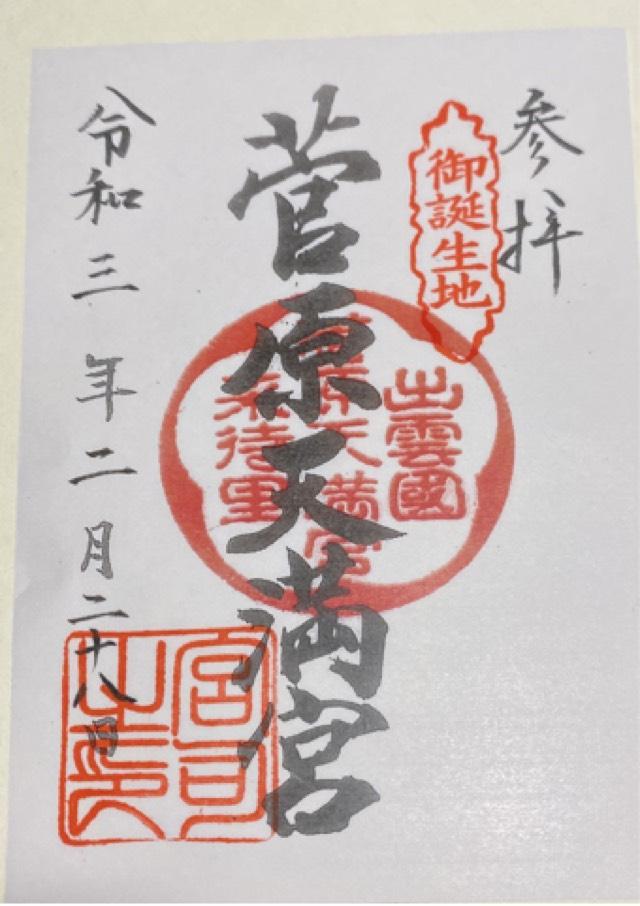 参拝
御誕生地
出雲國
菅原天満宮
来待里
菅原天満宮
令和三年二月二十八日
宮司
之印